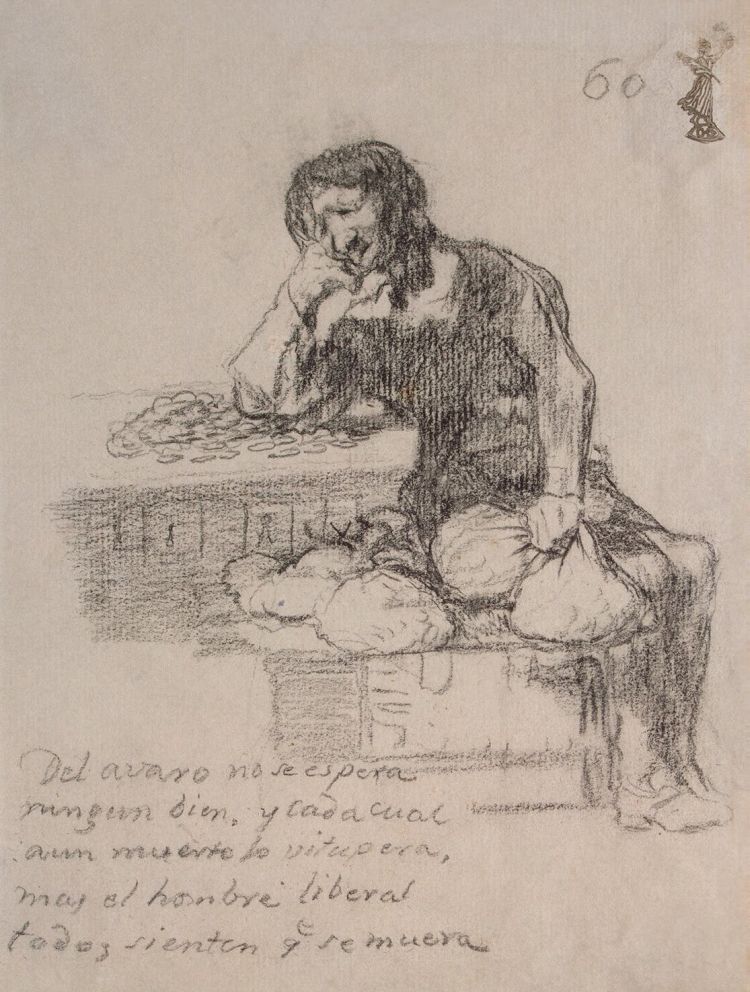 60
Del avaro no se espera
ningun bien, y cada cual
aun muerto lo vitupera,
mas el hombre liberal
todos sienten q̃ se muera